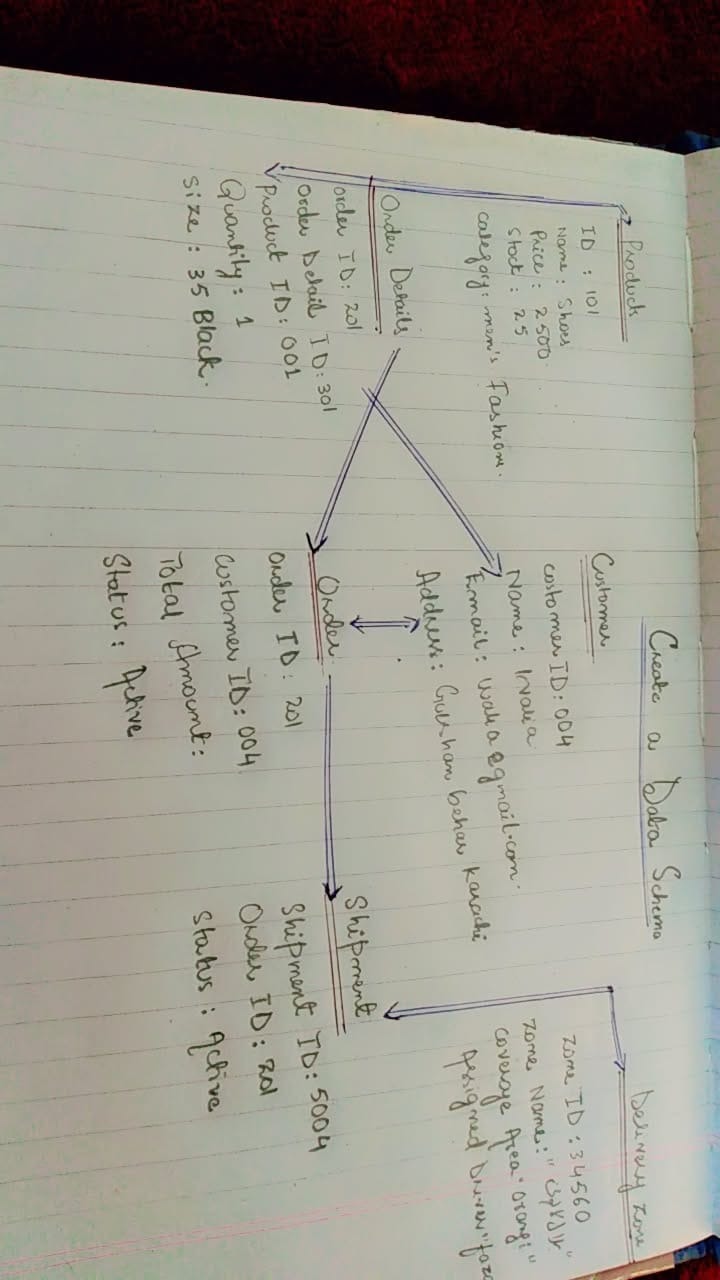 Create a Data Schema
Product
ID : 101
Name : Shoes
Price : 2500.
Stock : 25
category: men's Fashion.
Customer
costomer ID: 004
Name :
Email : walia@gmail.com.
Address : Gulshan behar Karachi
Delivery Zone
Zone ID : 34560
Zone Name:
coverage Area: orangi"
Assigned Driver
Order Details
order ID: 201
Order Detail ID: 301
Product ID: 001
Quantity : 1
Size : 35 Black.
Order
Order ID : 201
Customer ID: 004
Total Amount :
Status : Active
Shipment
Shipment ID: 5004
Order ID: 201
Status : Active